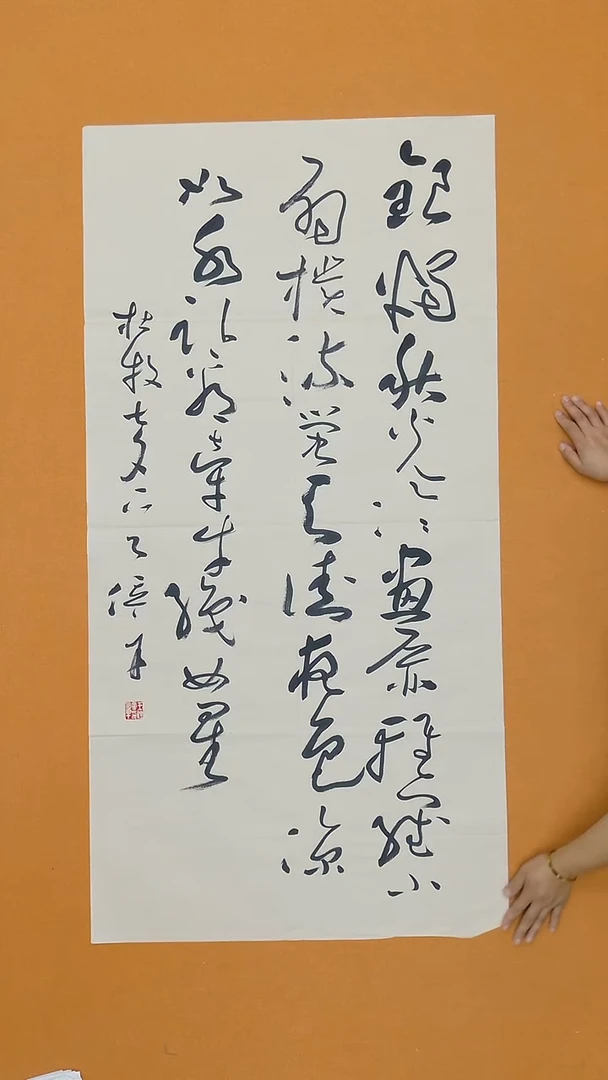 銀燭秋光冷畫屏輕羅小
扇撲流螢天階夜色涼
如水卧看牽牛織女星
杜牧七夕